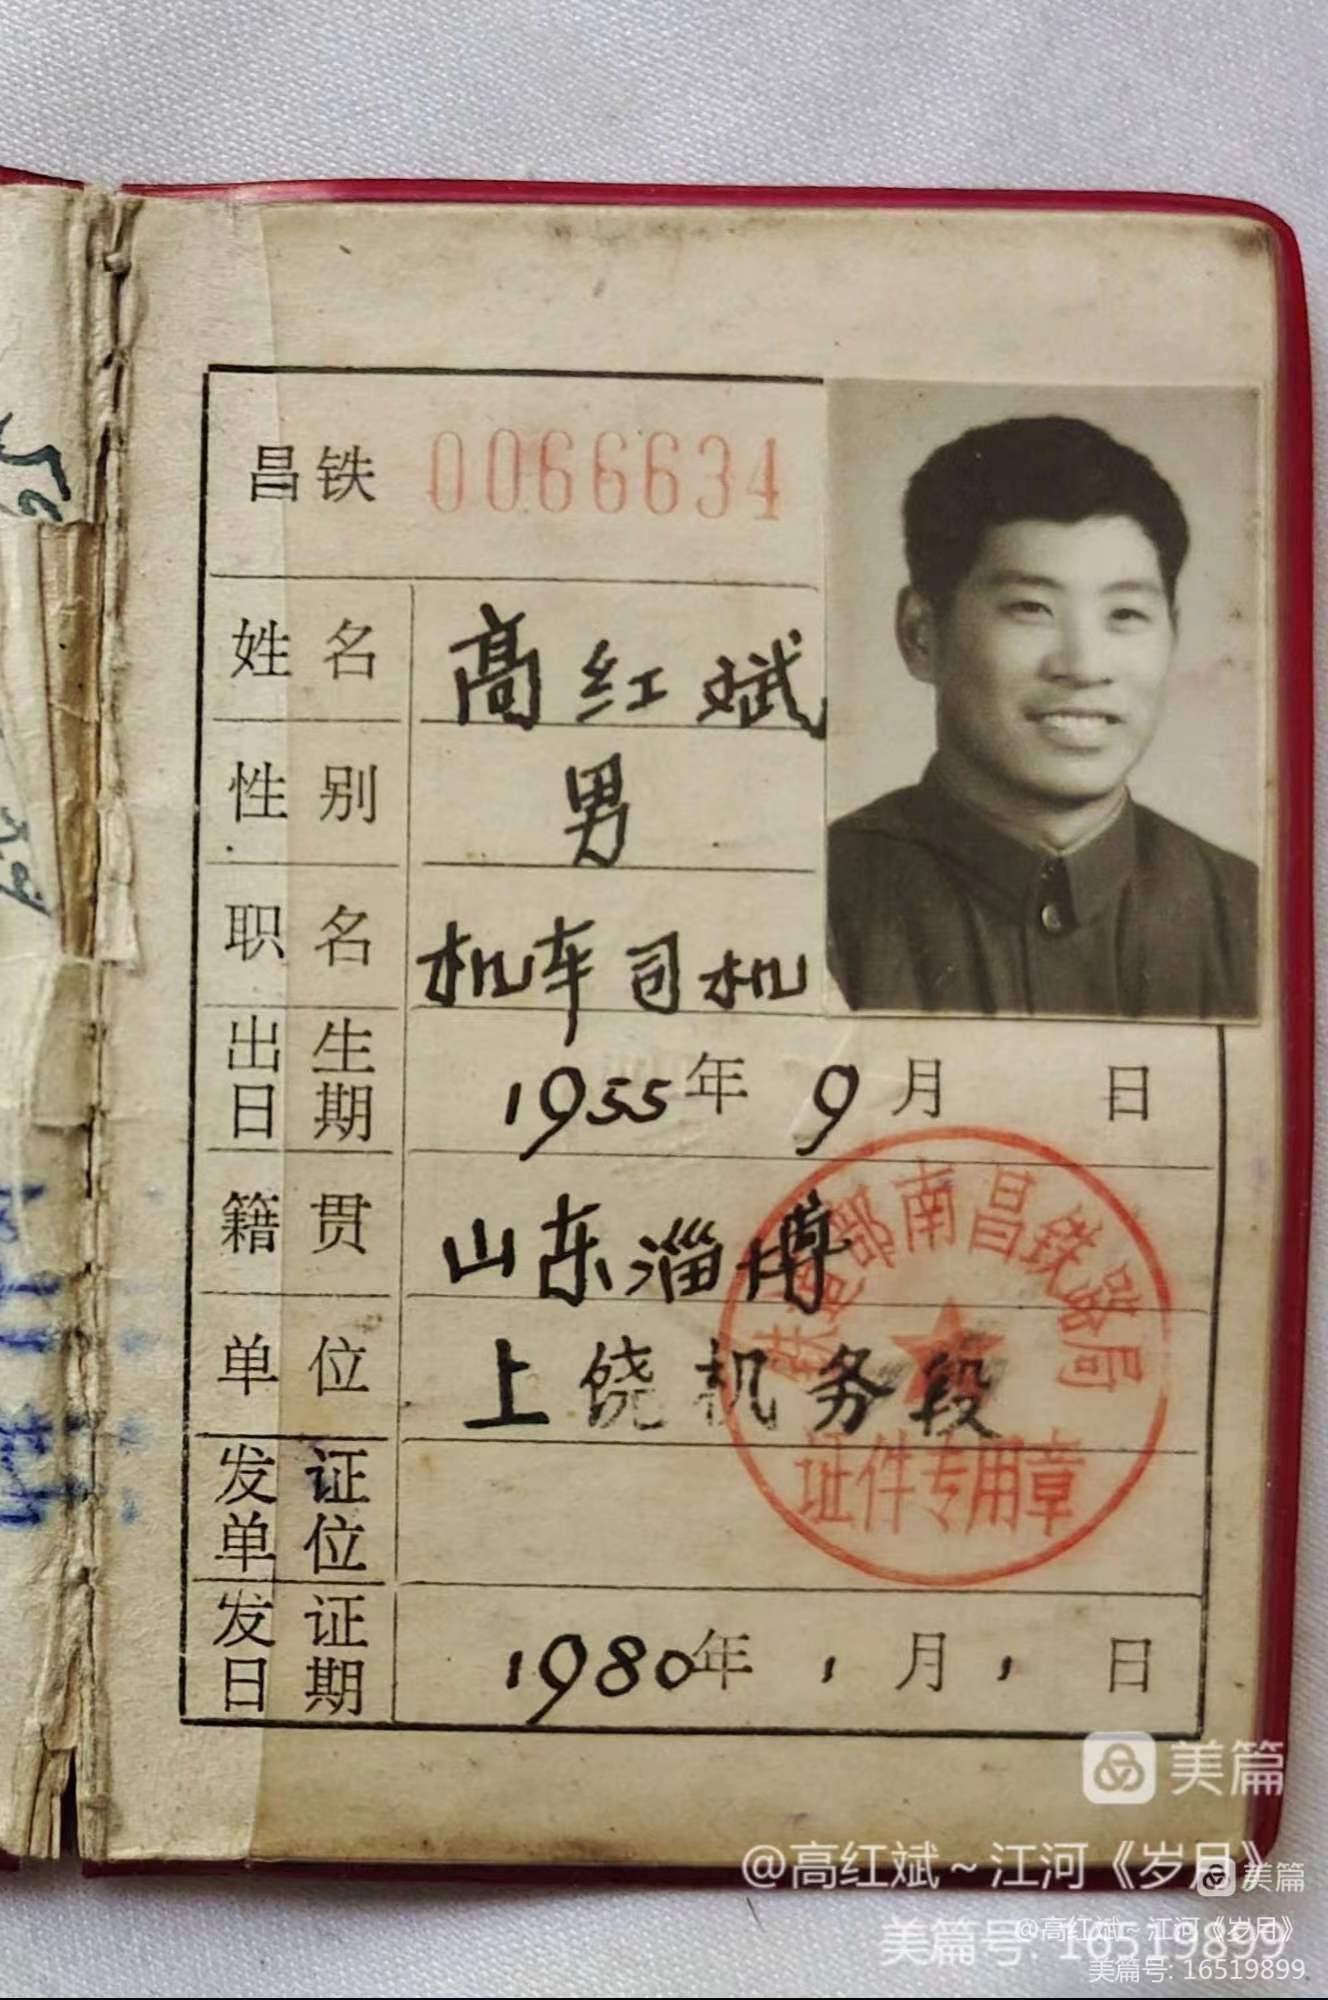 昌铁 0066634
姓名 高红斌
性别 男
职名 机车司机
出生日期 1955年9月 日
籍贯 山东淄博
单位 上饶机务段
发证单位
铁道部南昌铁路局
证件专用章
发证日期 1980年1月1日
美篇
@高红斌~江河《岁月》
美篇
美篇号: 16519899
@高红斌~江河《岁月》
美篇号: 16519899